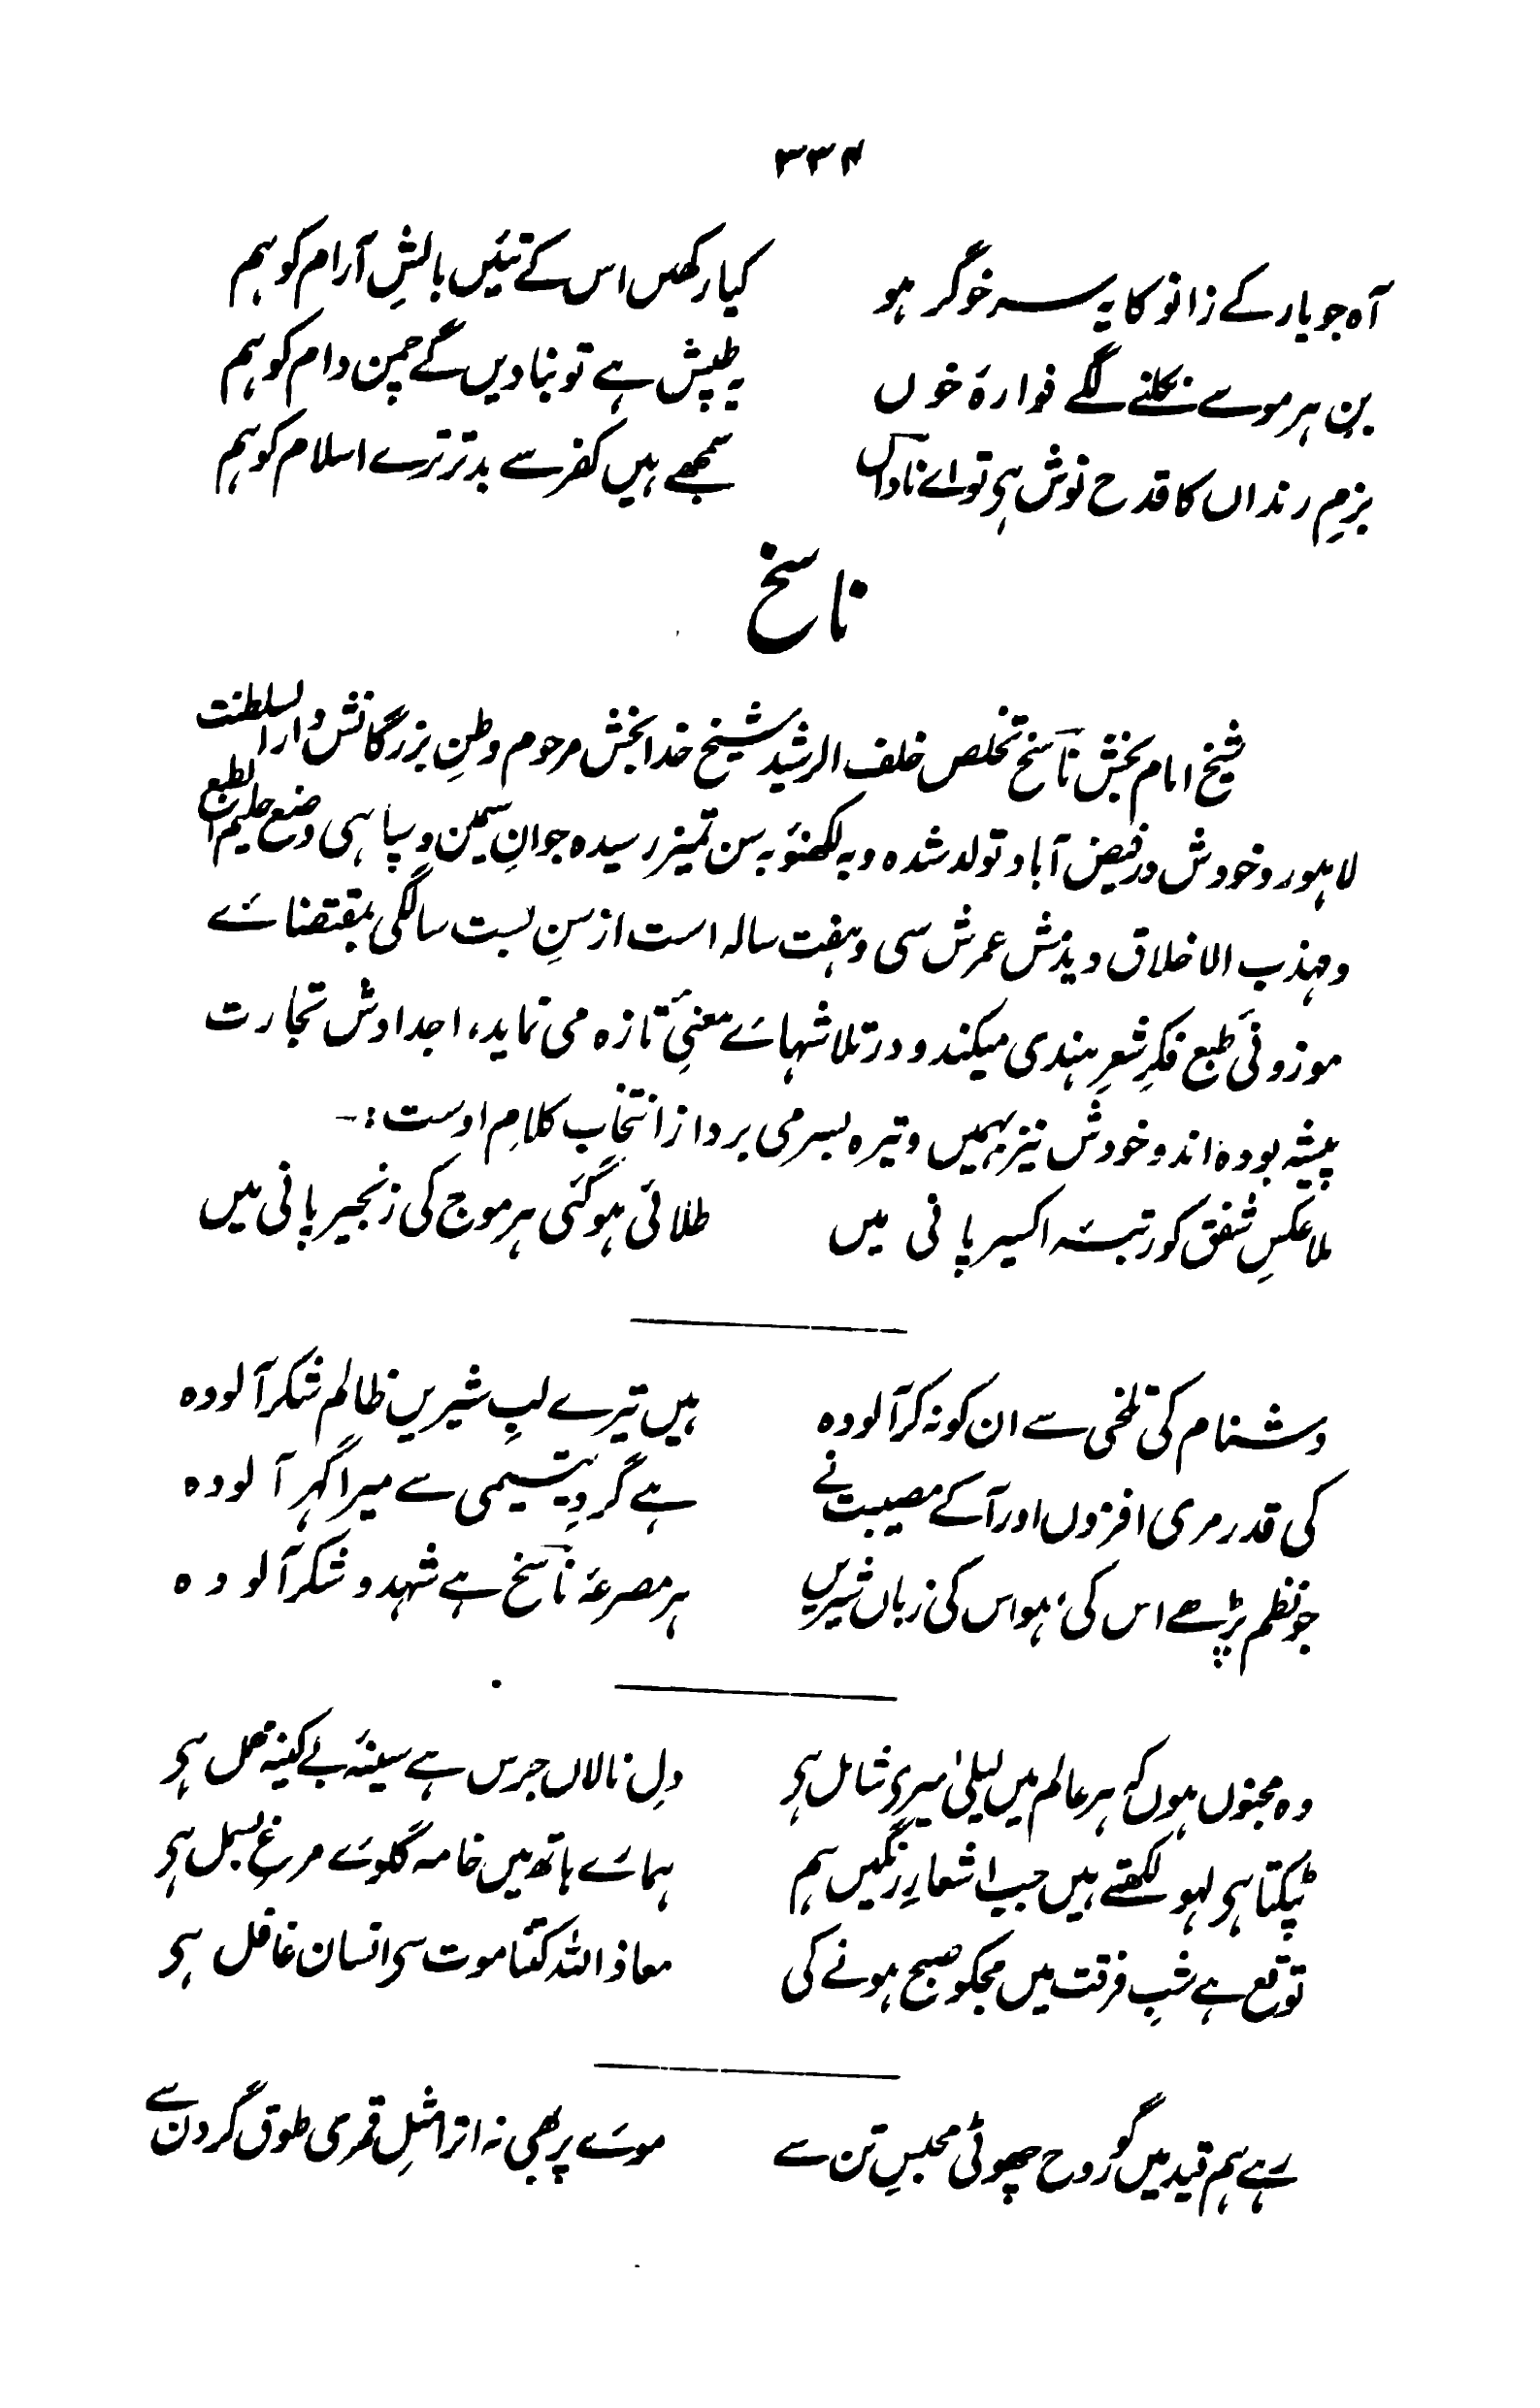 ۳۳۴
آہ جو یار کے زانو کا یہ سر خوگر ہو کیا رکھیں اس کے تئیں بالشِ آرام کو ہم
بن ہر مو سے نکلنے لگے فوارۂ خوں یہ طپش ہے تو بنا دیں گے چمن دام کو ہم
بزمِ رنداں کا قدح نوش ہی تو اے ناداں سمجھے ہیں کفر سے بدتر ترے اسلام کو ہم
ناسخ
شیخ امام بخش ناسخ تخلص خلف الرشید شیخ خدا بخش مرحوم وطنِ بزرگانش دار السلطنت
لاہور و خودش در فیض آباد تولد شدہ و بہ لکھنؤ بہ سن تمیز رسیدہ جوانِ سمین و سپاہی وضع حلیم الطبع
و مہذب الاخلاق دیدش عمرش سی و ہفت سالہ است از سنِ بست سالگی بمقتضائے
موزونیِ طبع فکرِ شعرِ ہندی میکند و در تلاشہائے معنیِ تازہ می نماید، اجدادش تجارت
پیشہ بودہ اند و خودش نیز بہمیں وتیرہ بسر می برد از انتخاب کلامِ اوست :۔
ملا عکسِ شفق کو رتبۂ اکسیر پانی میں طلائی ہو گئی ہر موج کی زنجیر پانی میں
دشنام کی تلخی سے ان کو نہ کر آلودہ ہیں تیرے لبِ شیریں ظالم شکر آلودہ
کی قدر مری افزوں اور آ کے مصیبت نے ہے گردِ یتیمی سے میرا گہر آلودہ
جو نظم پڑھے اس کی ہو اس کی زباں شیریں ہر مصرعۂ ناسخ ہے شہد و شکر آلودہ
وہ مجنوں ہوں کہ ہر عالم میں لیلیٰ میری شامل ہی دلِ نالاں جرس ہے سینۂ بے کینہ محمل ہی
ٹپکتا ہی لہو لکھتے ہیں جب اشعارِ رنگیں ہم ہمارے ہاتھ میں خامہ گلوئے مرغِ بسمل ہی
توقع ہے شبِ فرقت میں مجکو صبح ہونے کی معاذ اللہ کتنا موت سی انسان غافل ہی
رہے ہم قید میں گو روح چھوٹی محبسِ تن سے موئے پر بھی نہ اترا مثلِ قمری طوق گردن سے